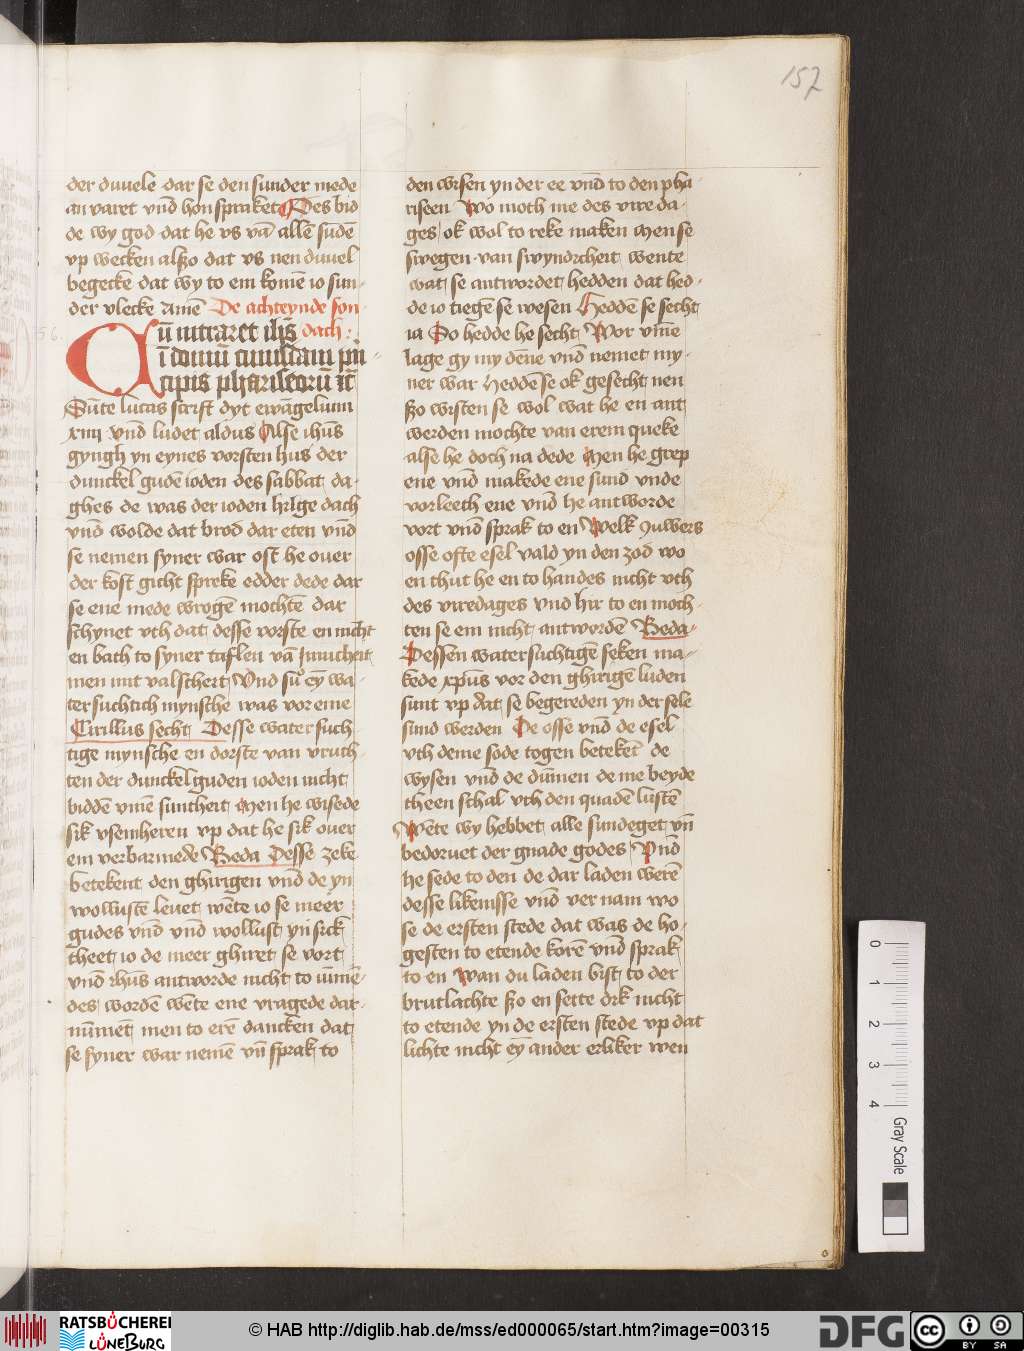 157
der duuele dar se den sunder mede
an varet vnd hon spraket Des bid
de wy god dat he vs vā allē sūdē
vp wecken alßo dat vs nen duuel
begecke dat wy to em komē io sun
der vlecke Amē De achteynde son
dach
Cū intraret ihs̄
ī domū cuiusdam prī
cipis phariseorū ꝛc̄
Sūte lucas scrift dyt ewāgelium
xiiij vnd ludet aldus Alse ihūs
gyngh yn eynes vorsten hus der
dunckel gudē ioden des sabbat da
ghes de was der ioden hilge dach
vnd wolde dat brod dar eten vnd
se nemen syner war oft he ouer
der kost gicht spreke edder dede dar
se ene mede wrogē mochtē dar
schynet vth dat desse vorste en nicht
en bath to syner taflen vā innicheit
men mit valscheit Vnd su ey̅ wa
tersuchtich mynsche was vor eme
Cirillus secht Desse water such
tige mynsche en dorste van vruch
ten der dunckel guden ioden nicht
biddē vmē suntheit Men he wisede
sik vsem heren vp dat he sik ouer
em verbarmede Beda Desse zeke
betekent den ghirigen vnd de yn
wollustē leuet wēte io se meer
gudes vnd vnd wollust yn sick
theet io de meer ghiret se vort
vnd ihūs antworde nicht to iūmē
des wordē wēte ene vragede dar
nūmet men to erē dancken dat
se syner war nemē vn̄ sprak to
den wisen yn der ee vnd to den pha
riseen Wo moth me des vire da
ges ok wol to reke maken Men se
swegen van swyndicheit wente
wat se antwordet hedden dat hed
de io tiegē se wesen Heddē se secht
ia So hedde he secht Wor vmē
lage gy my dēne vnd nemet my
ner war Heddē se ok gesecht nen
ßo wisten se wol wat he en ant
werden mochte van erem queke
alse he doch na dede Men he grep
ene vnd makede ene sund vnde
vorleeth ene vnd he antworde
vort vnd sprak to en Welk yuwers
osse ofte esel vald yn den zod wo
en thut he en to handes nicht vth
des viredages vnd hir to en moch
ten se em nicht antwordē Beda
Dessen watersuchtigē seken ma
kede xp̄us vor den ghirigē luden
sunt vp dat se begereden yn der sele
sund werden De osse vnd de esel
vth deme sode togen beteket de
wysen vnd de dūmen de me beyde
theen schal vth den quadē lustē
Wēte wy hebbet alle sundeget vn̄
bedoruet der gnade godes Vnd
he sede to den de dar laden werē
desse likenisse vnd vernam wo
se de ersten stede dat was de ho
gesten to etende korē vnd sprak
to en Wan du laden bist to der
brutlachte ßo en sette dik nicht
to etende yn de ersten stede vp dat
lichte nicht ey̅ ander erliker wen
0
1
2
3
4
Gray Scale
RATSBÜCHEREI
LÜNEBURG
© HAB http://diglib.hab.de/mss/ed000065/start.htm?image=00315
DFG
cc
BY SA